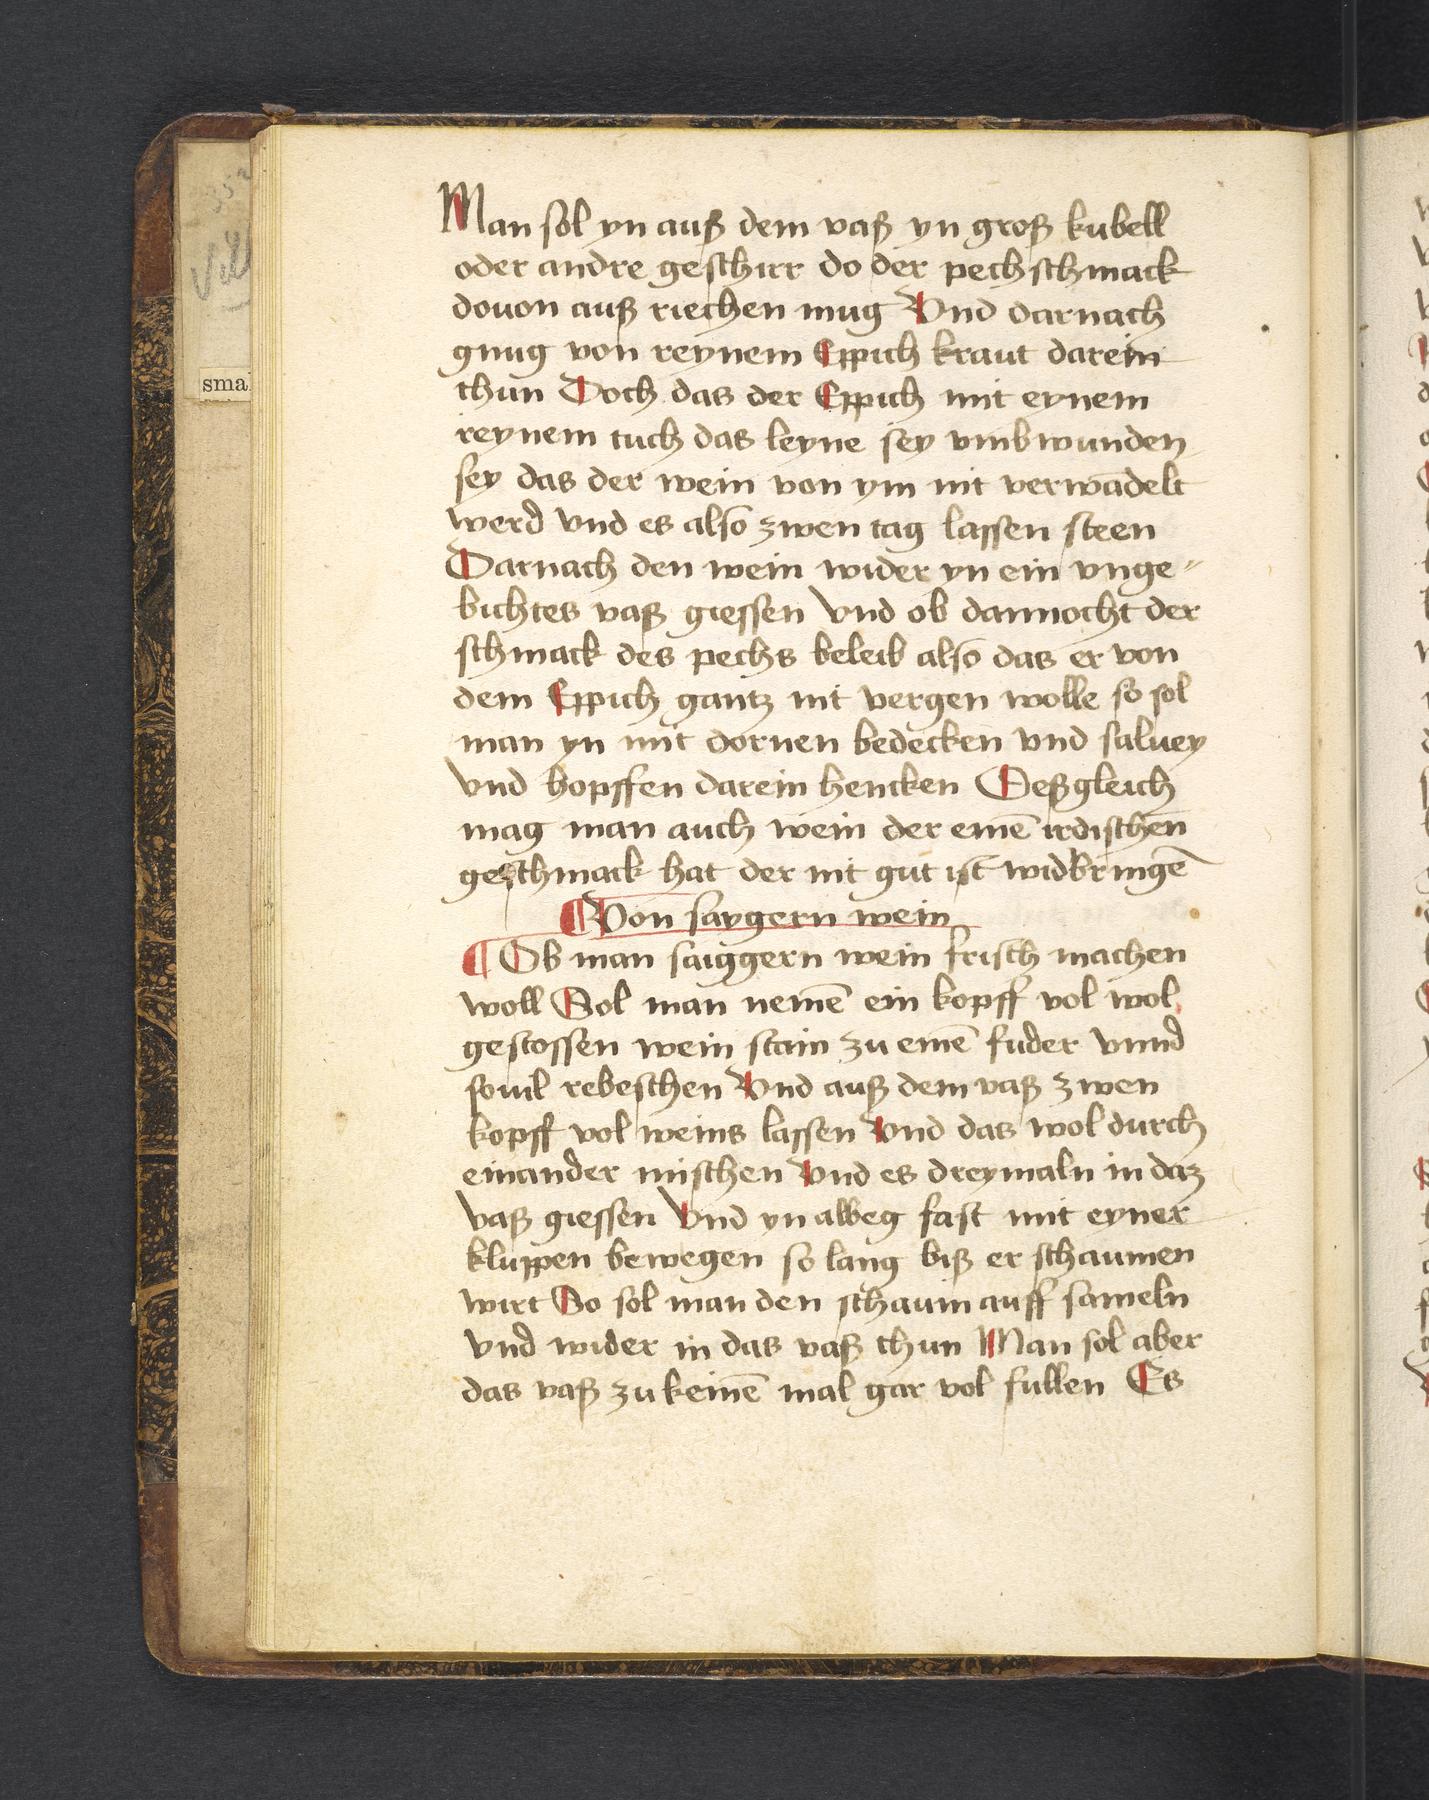 Man sol yn auß dem vaß yn groß kubell
oder andre geschirr do der pechschmack
douon auß riechen mug Vnd darnach
gnug von reynem Eppich kraut darein
thun Doch das der Eppich mit eynem
reynem tuch das leyne sey vmbwunden
sey das der wein von ym nit verwādelt
werd vnd es also zwen tag lassen steen
Darnach den wein wider yn ein vnge⸗
bichtes vaß giessen vnd ob dannocht der
schmack des pechs beleib also das er von
dem Eppich gantz nit vergen wolle so sol
man yn mit dornen bedecken vnd saluey
vnd hopffen darein hencken Deßgleich
mag man auch wein der einē irdischen
geschmack hat der nit gut ist widbringē
¶ Von saygern wein
¶ Ob man saiggern wein frisch machen
woll Sol man nemē ein kopff vol wol
gestossen wein stain zu einē fuder vnnd
souil rebeschen Vnd auß dem vaß zwen
kopff vol weins lassen Vnd das wol durch
einander mischen Vnd es dreymaln in daz
vaß giessen Vnd yn alweg fast mit eyner
kluppen bewegen so lang biß er schaumen
wirt So sol man den schaum auff sameln
vnd wider in das vaß thun Man sol aber
das vaß zu keinē mal gar vol fullen Es
smal